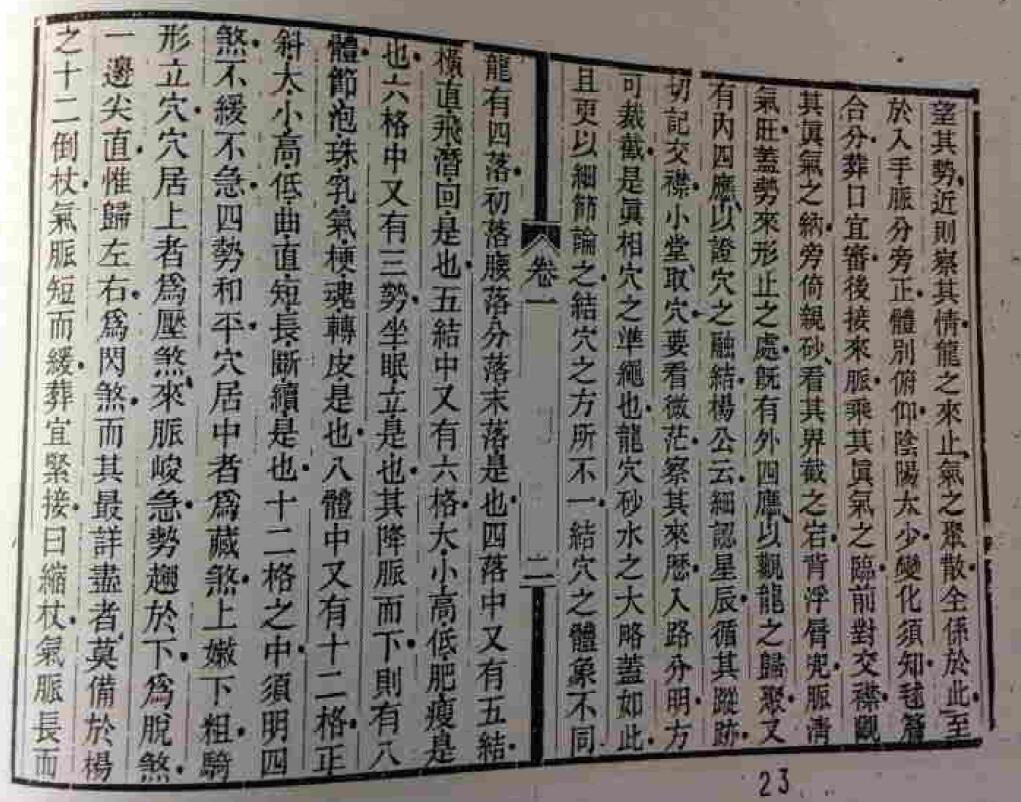 望其勢近則察其情龍之來止氣之聚散全係於此至
於入手脈分旁正體別俯仰陰陽太少變化須知毬簷
合分葬口宜審後接來脈乘其眞氣之臨前對交襟觀
其眞氣之納旁倚親砂看其界截之宕背浮脣兜脈淸
氣旺蓋勢來形止之處旣有外四應以觀龍之歸聚又
有內四應以證穴之融結楊公云細認星辰循其蹤跡
切記交襟小堂取穴要看微茫察其來歷入路分明方
可裁截是眞相穴之準繩也龍穴砂水之大略蓋如此
且更以細節論之結穴之方所不一結穴之體象不同
卷一
二
龍有四落初落腰落分落末落是也四落中又有五結
橫直飛潛回是也五結中又有六格大小高低肥瘦是
也六格中又有三勢坐眠立是也其降脈而下則有八
體節泡珠乳氣梗魂轉皮是也八體中又有十二格正
斜大小高低曲直短長斷續是也十二格之中須明四
煞不緩不急四勢和平穴居中者爲藏煞上嫩下粗騎
形立穴穴居上者爲壓煞來脈峻急勢趨於下爲脫煞
一邊尖直惟歸左右爲閃煞而其最詳盡者莫備於楊
之十二倒杖氣脈短而緩葬宜緊接曰縮杖氣脈長而
23